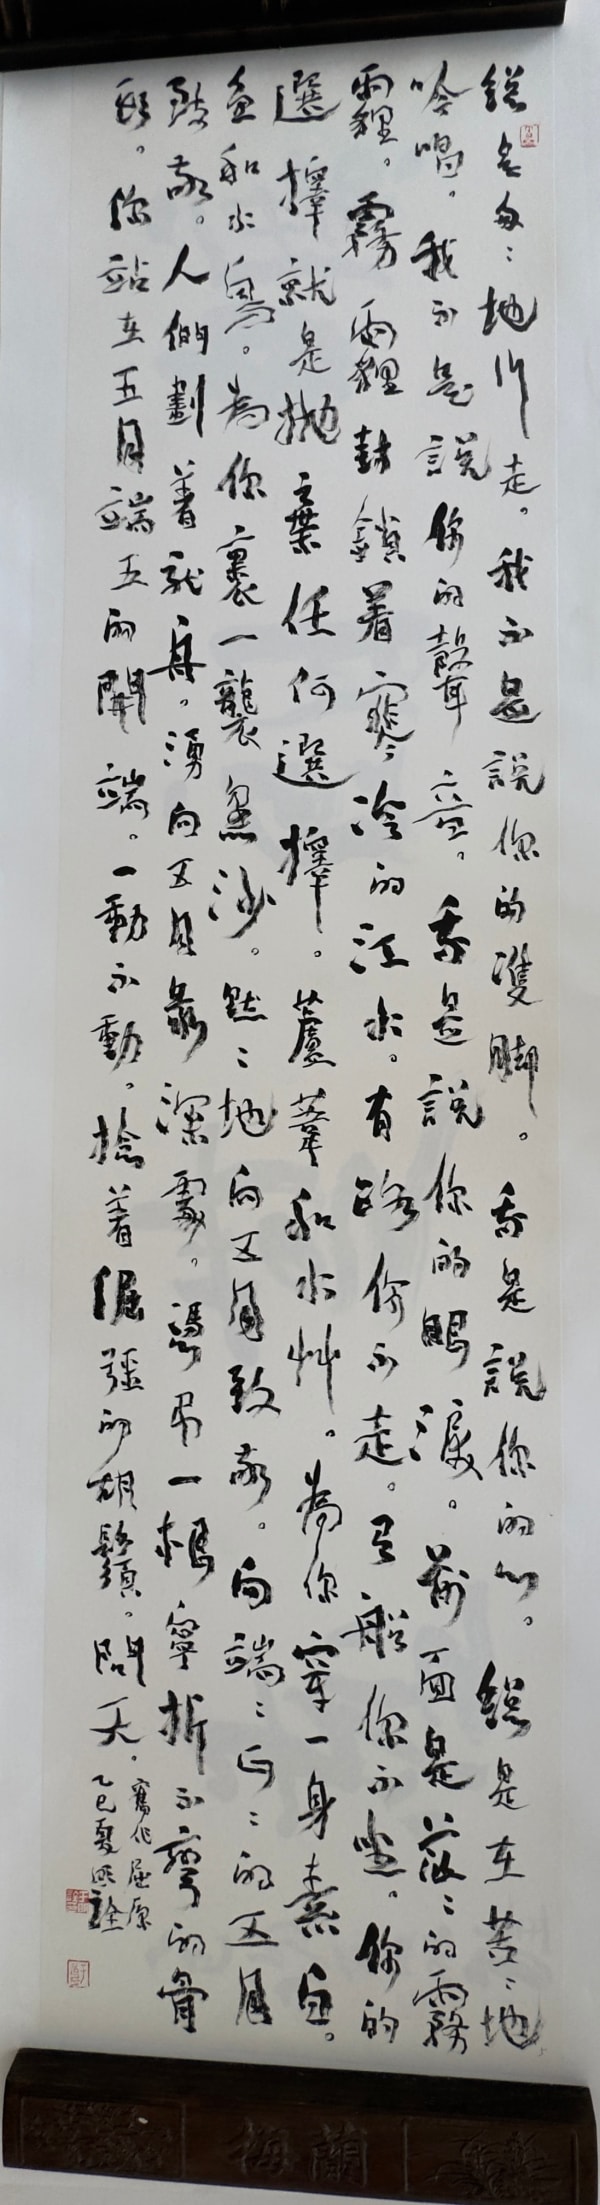 總是匆匆地行走。我不是說你的雙脚。我是說你的心。總是在苦苦地
吟唱。我不是說你的聲音。我是說你的眼淚。前面是茫茫的霧
霾。霧霾封鎖着寒冷的江水。有路你不走。有船你不坐。你的
選擇就是拋棄任何選擇。蘆葦和水草。為你穿一身素白。
魚和水鳥。為你裹一襲黑沙。默默地向五月致敬。向端端正正的五月
致敬。人們劃着龍舟。湧向五月最深處。憑吊一根寧折不彎的骨
頭。你站在五月端五的開端。一動不動。捻着倔强的胡鬚。問天。
舊作屈原
乙巳夏
蘭梅